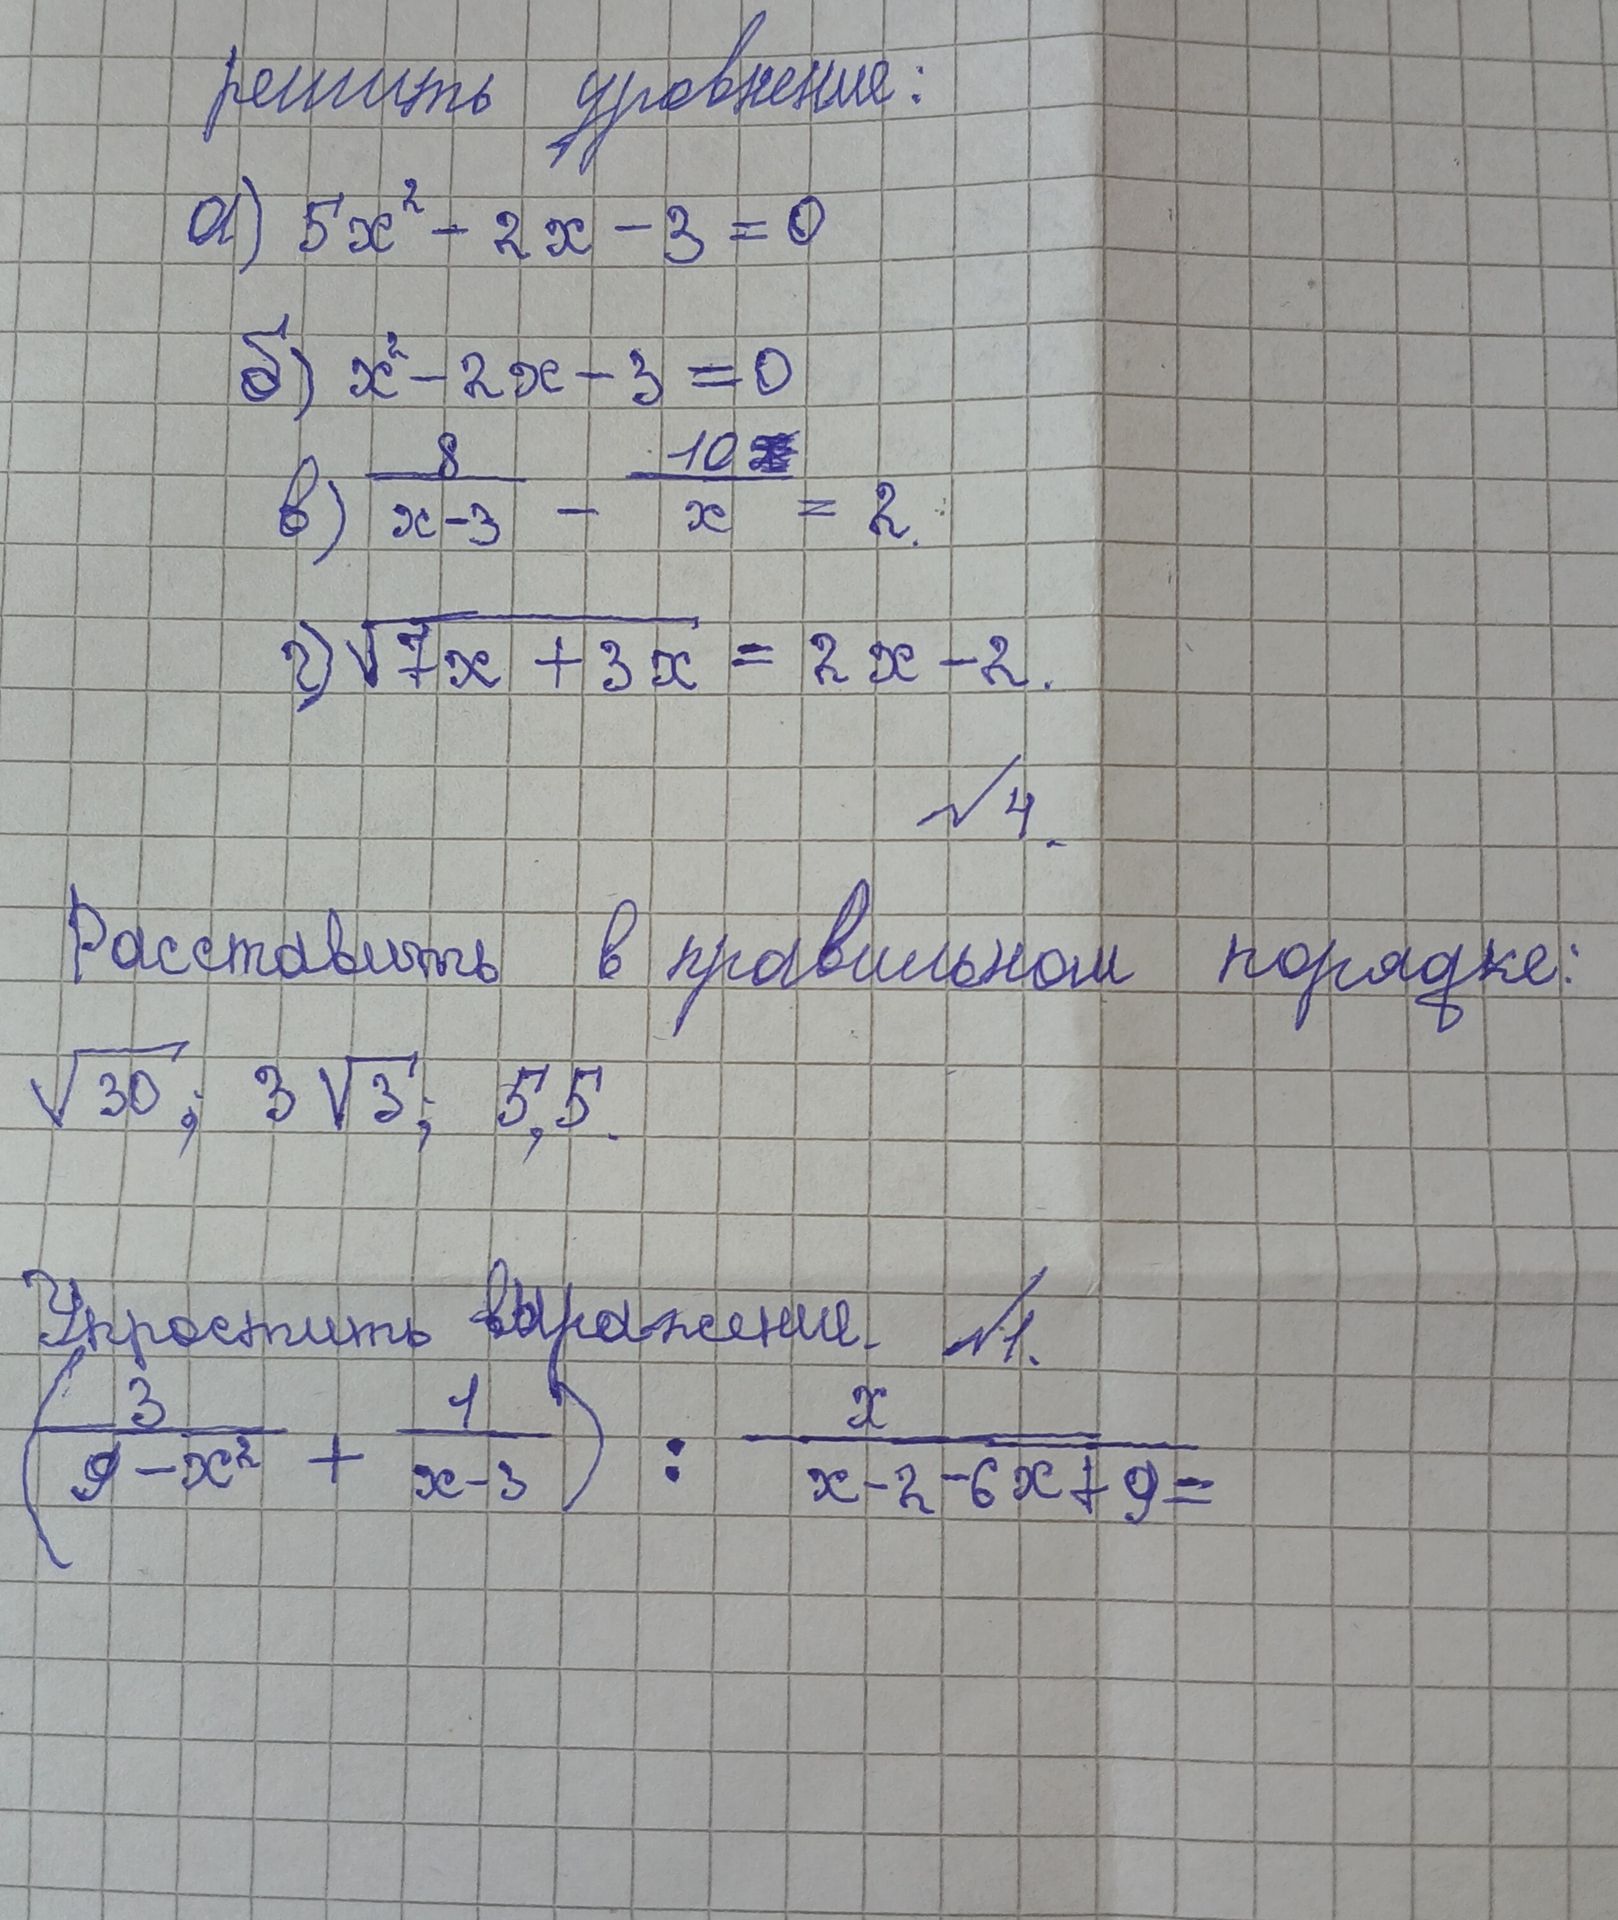 решить уравнение:
а) 5x² - 2x - 3 = 0
б) x² - 2x - 3 = 0
в) 8/(x-3) - 10/x = 2.
г) √(7x + 3x) = 2x - 2.
№4.
Расставить в правильном порядке:
√30; 3√3; 5,5.
Упростить выражение. №1.
(3/(9-x²) + 1/(x-3)) : x/(x-2-6x+9) =